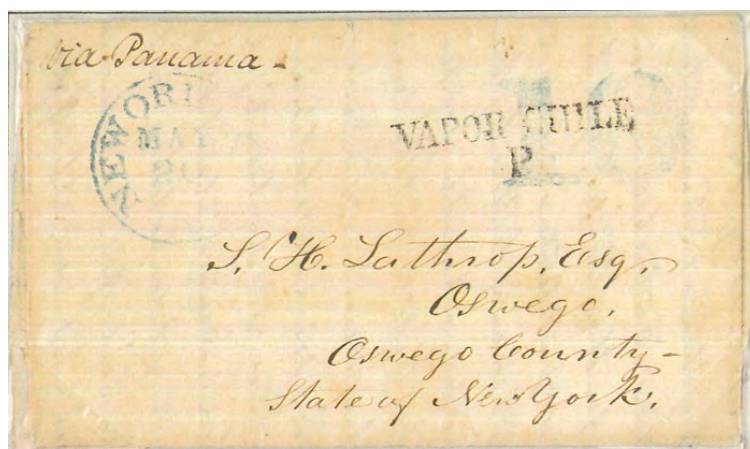 via Panama -
NEW ORL
MAY
20
VAPOR CHILE
P.
10
S. H. Lathrop, Esq.
Oswego,
Oswego County -
State of New York.